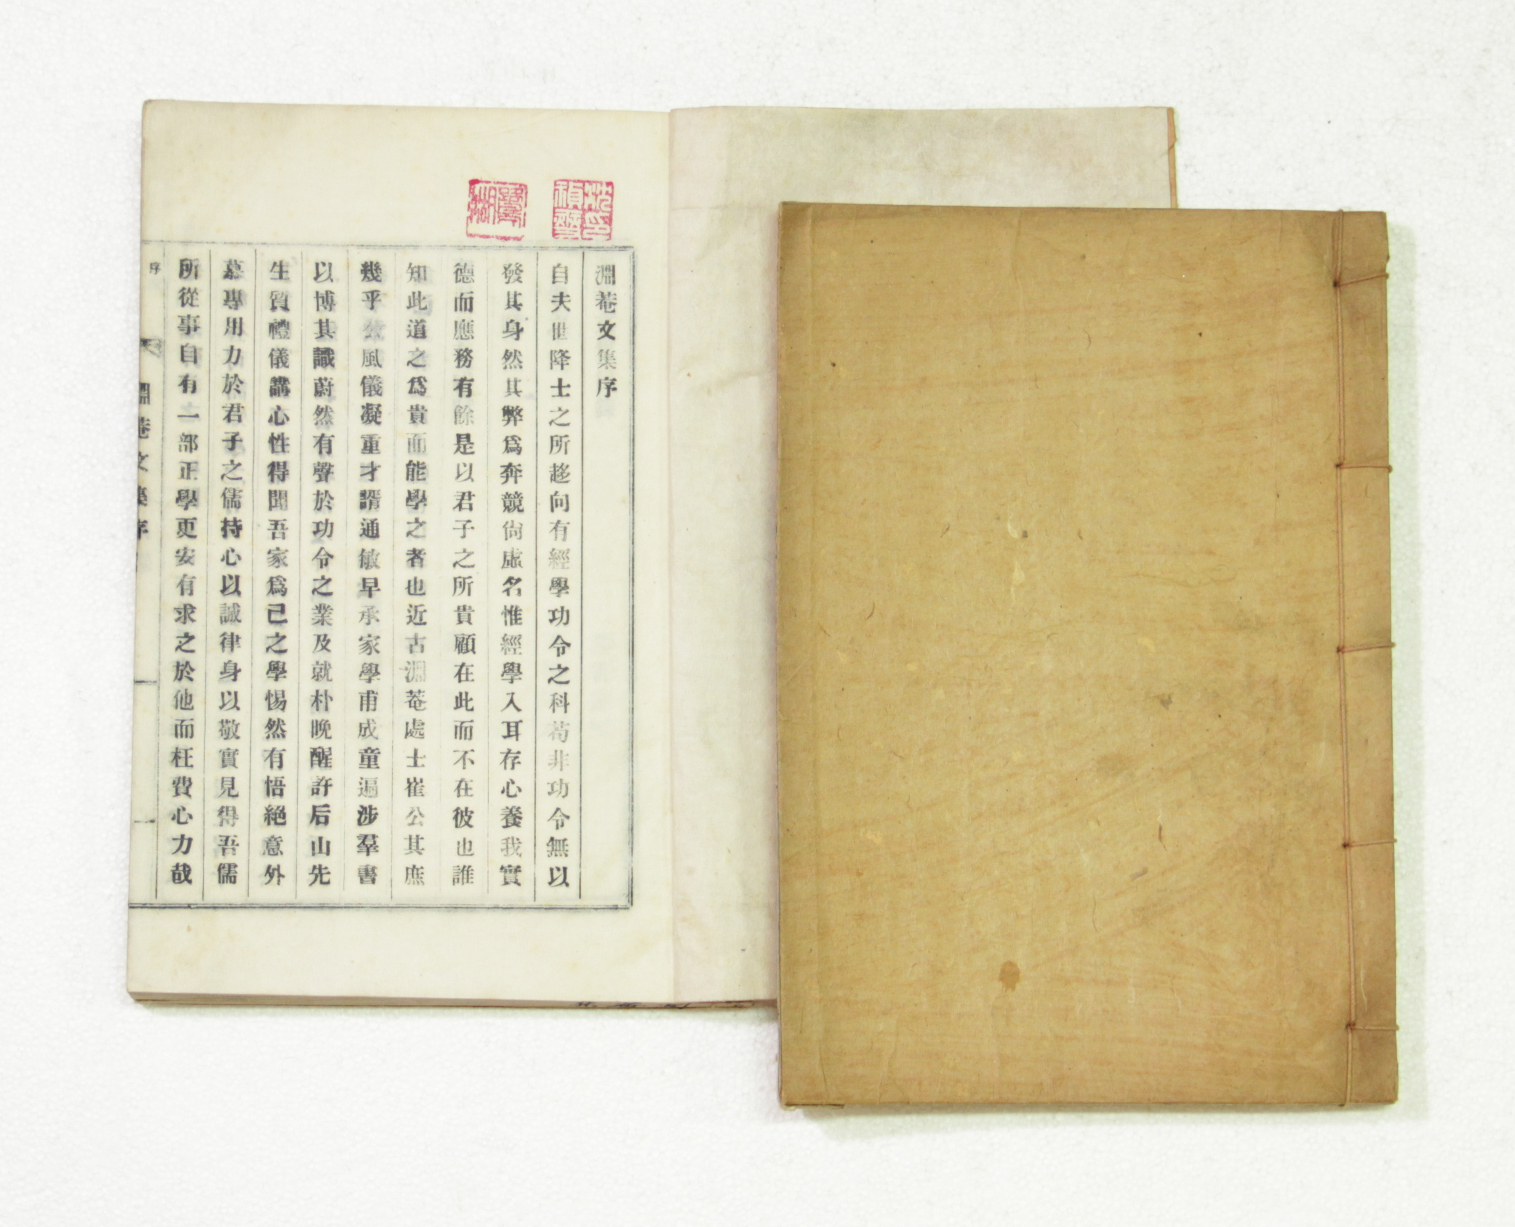 淵菴文集序
自夫世降士之所趍向有經學功令之科苟非功令無以
發其身然其弊爲奔競尙虛名惟經學入耳存心養我實
德而應務有餘是以君子之所貴顧在此而不在彼也誰
知此道之爲貴而能學之者也近古淵菴處士崔公其庶
幾乎公風儀凝重才諝通敏早承家學甫成童遍涉羣書
以博其識蔚然有聲於功令之業及就朴晩醒許后山先
生質禮儀講心性得聞吾家爲己之學惕然有悟絶意外
慕專用力於君子之儒持心以誠律身以敬實見得吾儒
所從事自有一部正學更安有求之於他而枉費心力哉
序
淵菴文集序